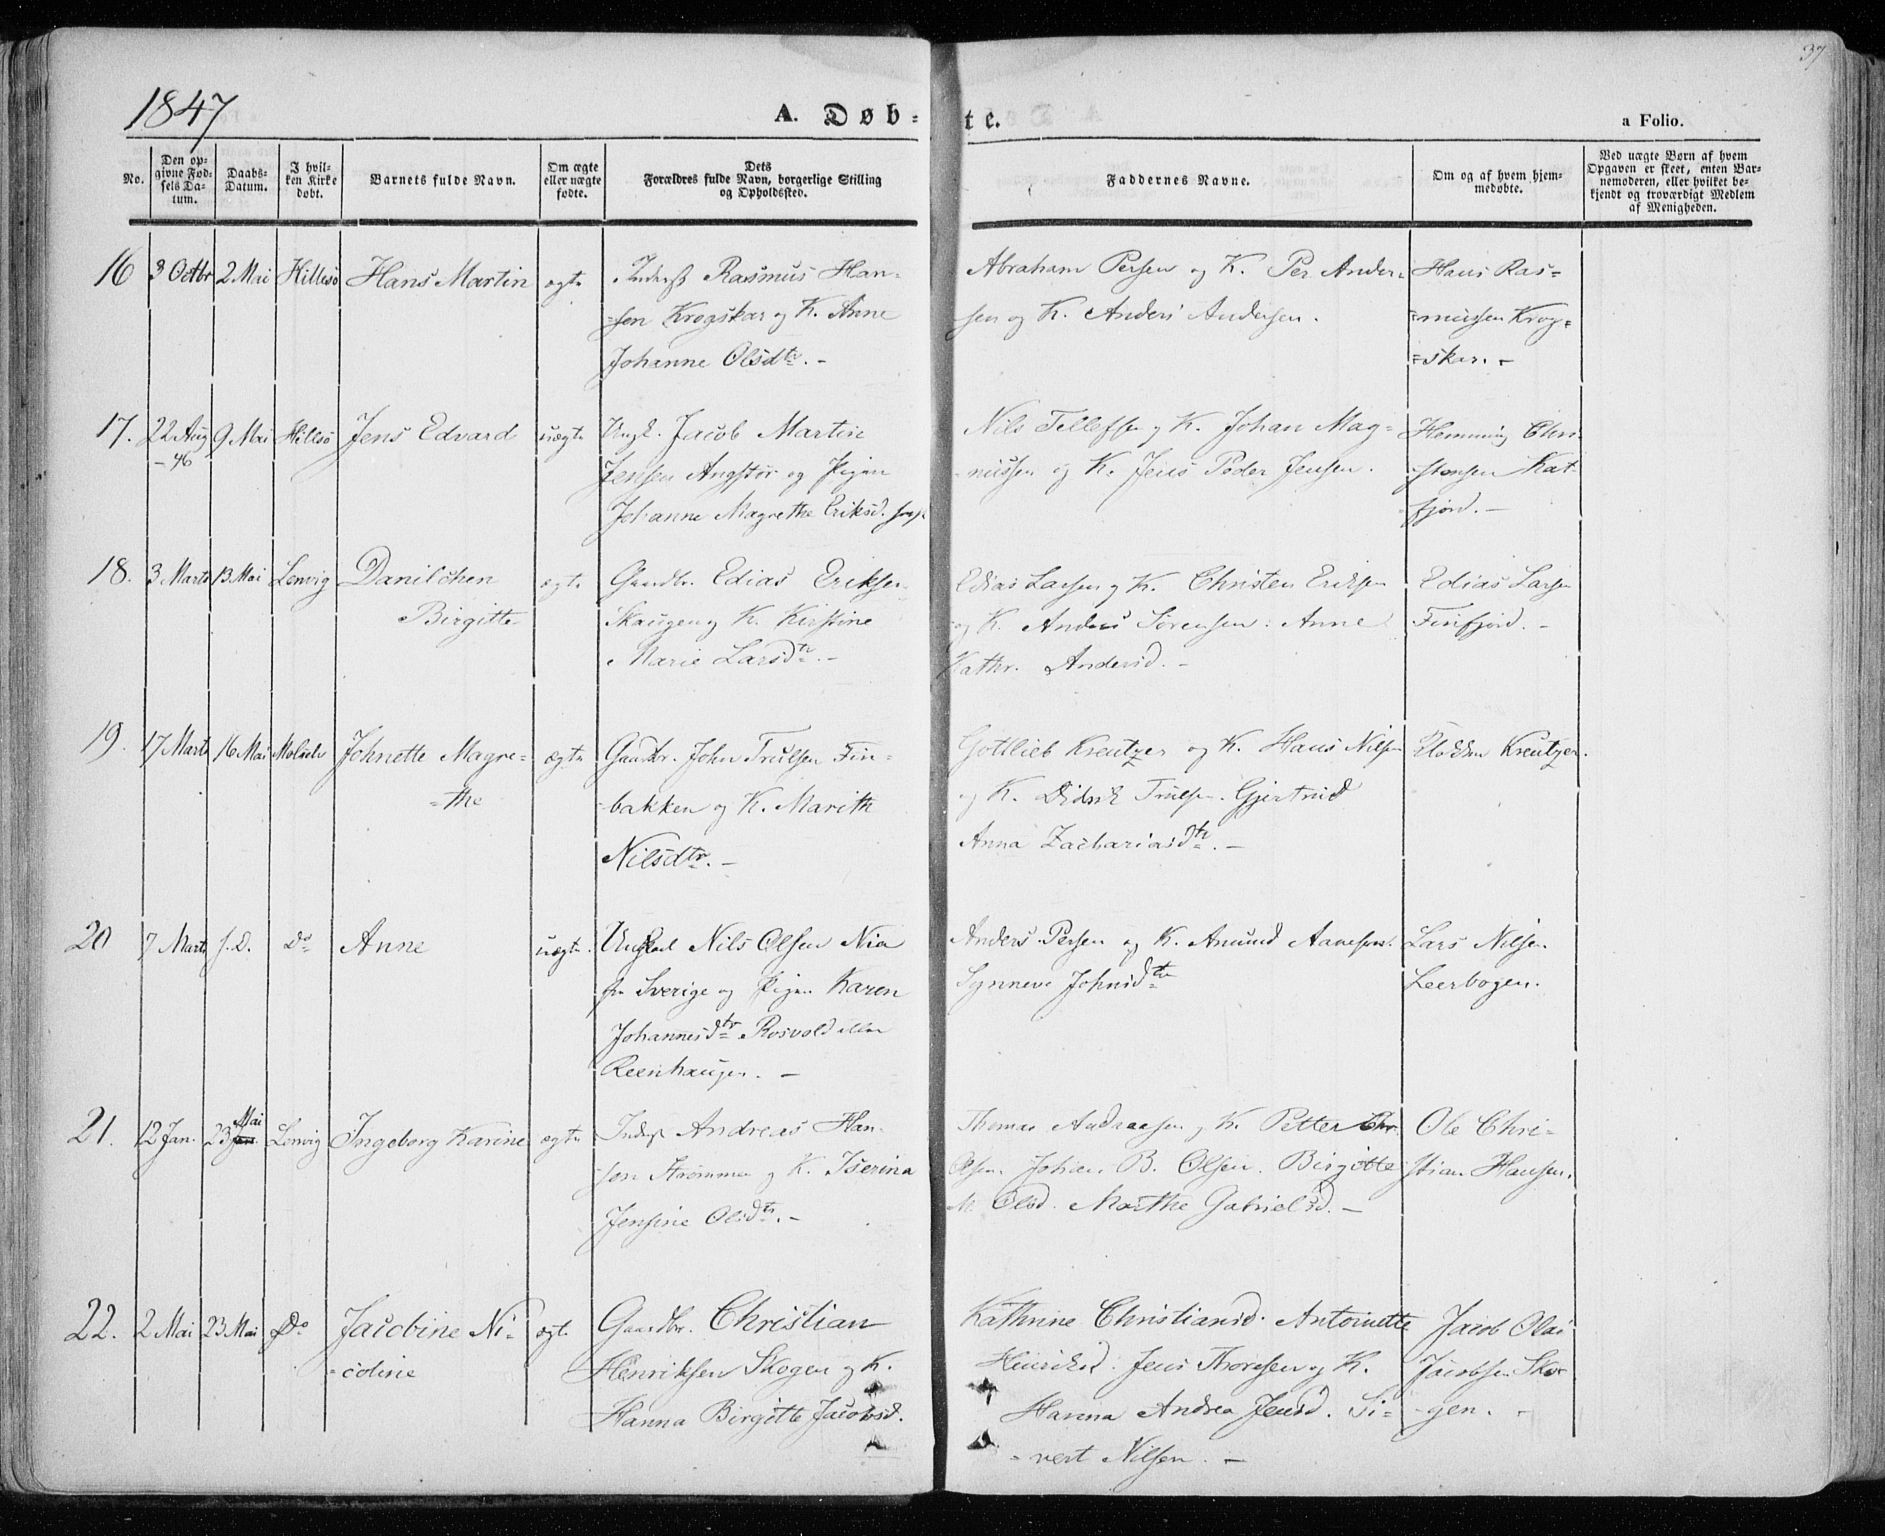 37
1847
A. Døb-
te.
a Folio.
No.
Den op-
givne Fød-
sels Da-
tum.
Daabs-
Datum.
I hvil-
ken Kirke
døbt.
Barnets fulde Navn.
Om ægte
eller uægte
fødte.
Dets
Forældres fulde Navn, borgerlige Stilling
og Opholdssted.
Faddernes Navne.
Om og af hvem hjem-
medøbte.
Ved uægte Børn af hvem
Opgaven er skeet, enten Bar-
nemoderen, eller hvilket be-
kjendt og troværdigt Medlem
af Menigheden.
16
3 Octbr
2 Mai
Hillesø
Hans Martin
ægte
Inderst Rasmus Han-
=sen Krogskar og K. Anne
Johanne Olsdtr. -
Abraham Persen og K. Per Ander=
sen og K. Anders Andersen.
Hans Ras=
=mussen Krog=
=skar. -
17.
22 Aug
- 46
9 Mai
Hillsø
Jens Edvard
uægte
Ungk. Jacob Martin
Jensen Angstor og Pigen
Johanne Magrethe Eriksd.
Nils Tellefsen og K. Johan Mag=
=nussen og K. Jens Peder Jensen.
Hemming Chri-
stensen Kat-
fjord. -
18.
3 Marts
13 Mai
Lenvig
Danilchen
Birgitte
ægte
Gaardbr. Edias Eriksen
Skaugen og K. Kirstine
Marie Larsdtr. -
Edias Larsen og K. Christen Eriksen
og K. Anders Sörensen. Anne
Kathr. Andersd. -
Edias Larsen
Finfjord. -
19.
17 Marts
16 Mai
Molselv
Johnette Magre=
=the
ægte
Gaardbr. John Trulsen Fin-
bakken og K. Marith
Nilsdtr. -
Gottlieb Kreutzer og K. Hans Nilsen
og K. Didrik Trulsen. Gjertrud
Anna Zachariasdtr. -
Kreutzer.
20
7 Marts
s. D.
Do
Anne
uægte.
Ungkarl Nils Olsen Nia
fra Sverige og Pigen Karen
Johannesdtr. Rosvold eller
Reenhaugen. -
Anders Persen og K. Amund
Synneve Johnsdtr
Lars Nilsen
Leerbogen.
21.
12 Jan.
Mai
23 Jan.
Lenvig
Ingeborg Karine
ægte
Inderst Andreas Han-
sen Strømmen og K. Iserina
Jensine Olsdtr. -
Thomas Andreasen og K. Petter Chr.
Olsen. Johan B. Olsen. Birgitte
M. Olsd. Marthe Gabrielsd. -
Ole Chri-
stian Hansen.
22.
2 Mai
23 Mai
Do
Jacobine Ni-
=coline
ægte
Gaardbr. Christian
Henriksen Skogen og K.
Hanna Birgitte Jacobsd.
Kathrine Christiansd. Antoinette
Henriksd. Jens Thoresen og K.
Hanna Andrea Jensd. Si=
=vert Nilsen. -
Jacob Olai
Jacobsen Sko-
gen. -